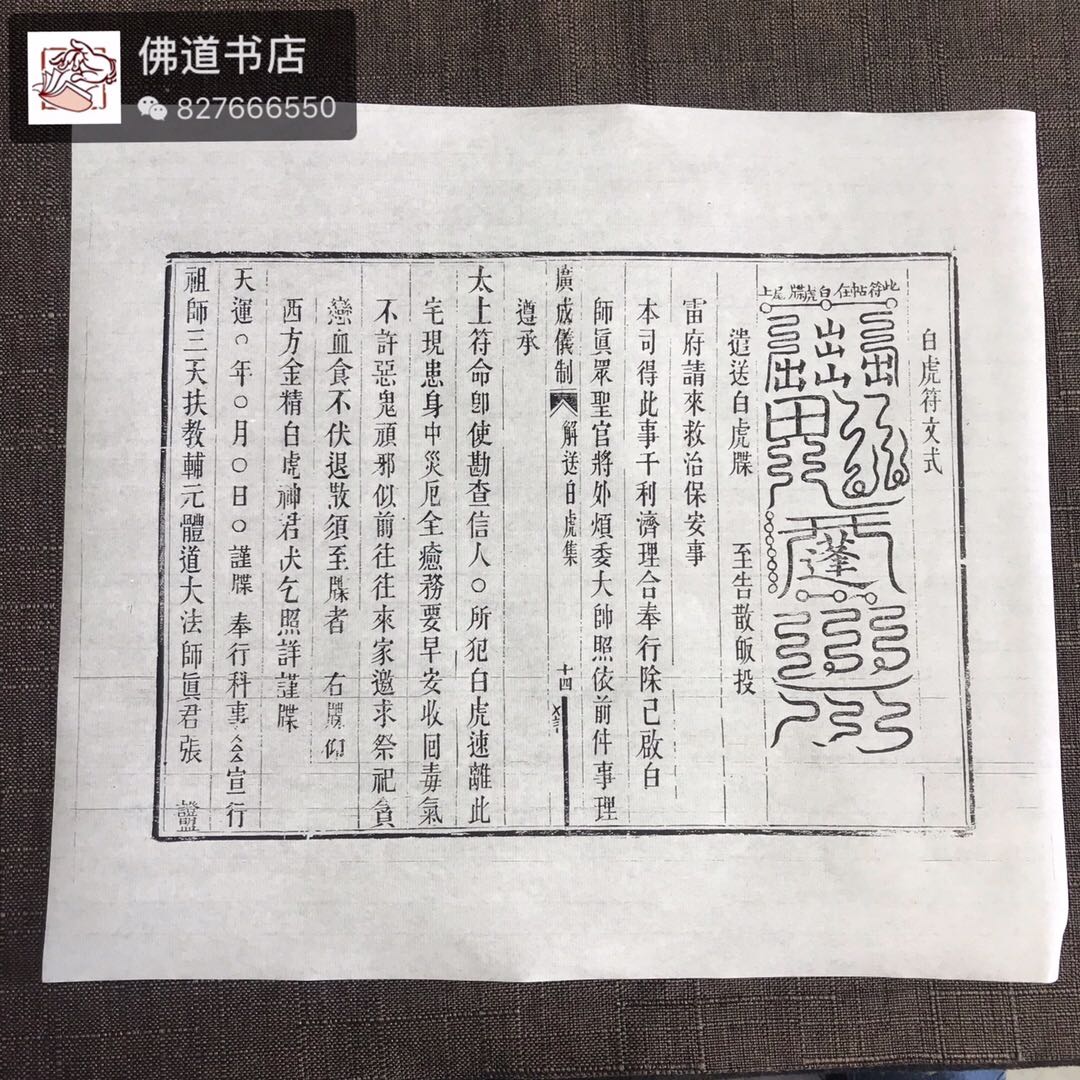 佛道书店
827666550
白虎符文式
此符帖在白虎牒尾上
蓬
遣送白虎牒 至告散皈投
雷府請來救治保安事
本司得此事千利濟理合奉行除已啟白
師眞眾聖官將外煩委大帥照依前件事理
廣成儀制 解送白虎集 十四
遵承
太上符命卽使勘查信人○所犯白虎速離此
宅現患身中災厄全癒務要早安收回毒氣
不許惡鬼頑邪似前往往來家邀求祭祀貪
戀血食不伏退散須至牒者 右牒仰
西方金精白虎神君伏乞照詳謹牒
天運○年○月○日○謹牒 奉行科事 宣行
祖師三天扶教輔元體道大法師眞君張 證盟